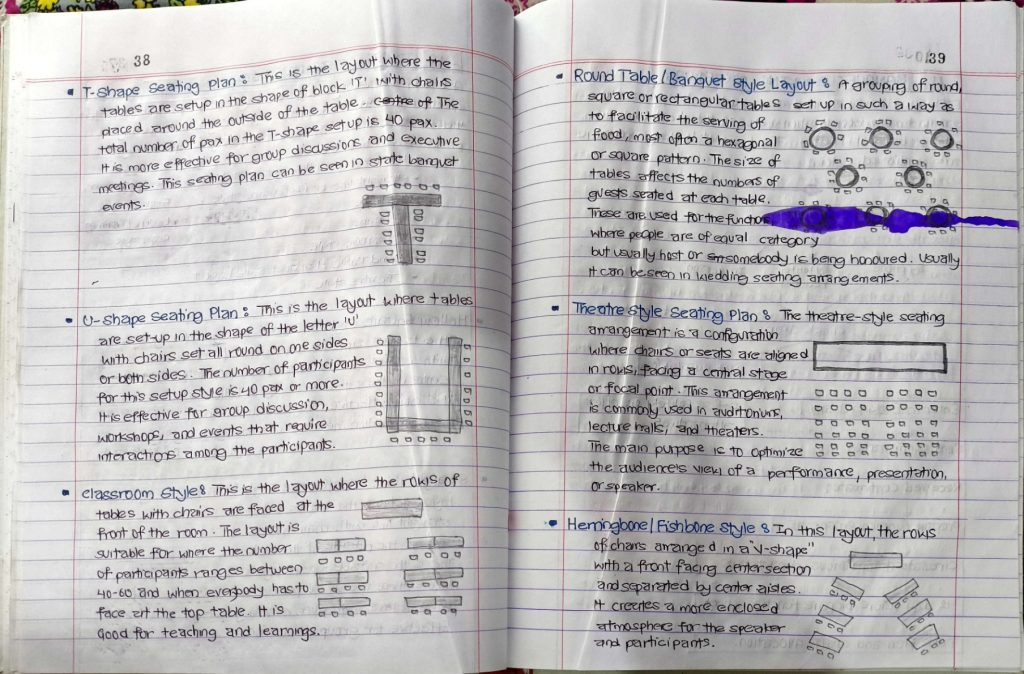 38
• T-Shape Seating Plan : This is the layout where the
tables are setup in the shape of block 'T' with chairs
placed around the outside of the table. centre of The
total number of pax in the T-shape setup is 40 pax.
It is more effective for group discussions and executive
meetings. This seating plan can be seen in state banquet
events.
• U-shape Seating Plan : This is the layout where tables
are set-up in the shape of the letter 'U'
with chairs set all round on one sides
or both sides. The number of participants
for this setup style is 40 pax or more.
It is effective for group discussion,
workshops, and events that require
interactions among the participants.
• Classroom Style : This is the layout where the rows of
tables with chairs are faced at the
front of the room. The layout is
suitable for where the number
of participants ranges between
40-60 and when everybody has to
face at the top table. It is
Good for teaching and learnings.
39
• Round Table / Banquet Style Layout : A grouping of round,
square or rectangular tables set up in such a way as
to facilitate the serving of
food, most often a hexagonal
or square pattern. The size of
tables affects the numbers of
guests seated at each table.
These are used for the function
where people are of equal category
but usually host or somebody is being honoured. Usually
it can be seen in wedding seating arrangements.
• Theatre Style Seating Plan : The theatre-style seating
arrangement is a configuration
where chairs or seats are aligned
in rows, facing a central stage
or focal point. This arrangement
is commonly used in auditoriums,
lecture halls, and theaters.
The main purpose is to optimize
the audience's view of a performance, presentation,
or speaker.
• Herringbone / Fishbone Style : In this layout, the rows
of chairs arranged in a "V-shape"
with a front facing center section
and separated by center aisles.
It creates a more enclosed
atmosphere for the speaker
and participants.